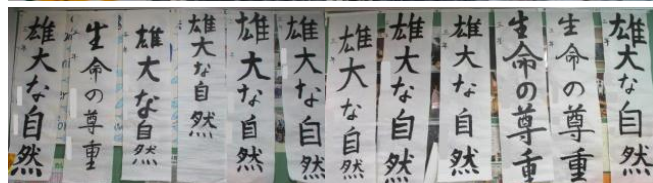 雄大な自然
生命の尊重
生命の尊重
雄大な自然
雄大な自然
雄大な自然
雄大な自然
雄大な自然
雄大な自然
雄大な自然
生命の尊重
雄大な自然